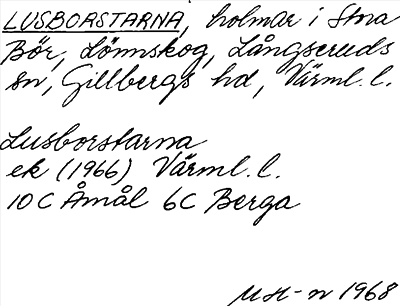 LUSBORSTARNA, holmar i Stora
Bör, Lönnskog, Långseruds
sn, Gillbergs hd, Värml. l.
Lusborstarna
ek (1966) Värml. l.
10 C Åmål 6C Berga
MH-n 1968